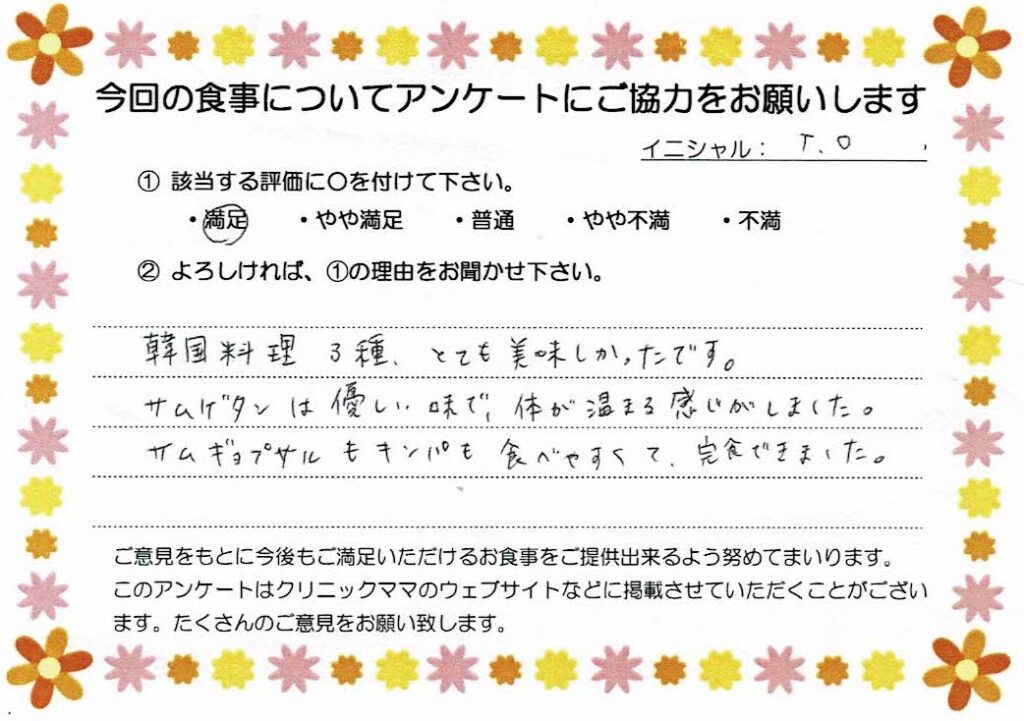 今回の食事についてアンケートにご協力をお願いします
イニシャル： T.O
① 該当する評価に〇を付けて下さい。
・満足 ・やや満足 ・普通 ・やや不満 ・不満
② よろしければ、①の理由をお聞かせ下さい。
韓国料理 3種、とても美味しかったです。
サムゲタンは優しい味で、体が温まる感じがしました。
サムギョプサルもキンパも食べやすくて、完食できました。
ご意見をもとに今後もご満足いただけるお食事をご提供出来るよう努めてまいります。
このアンケートはクリニックママのウェブサイトなどに掲載させていただくことがござい
ます。たくさんのご意見をお願い致します。